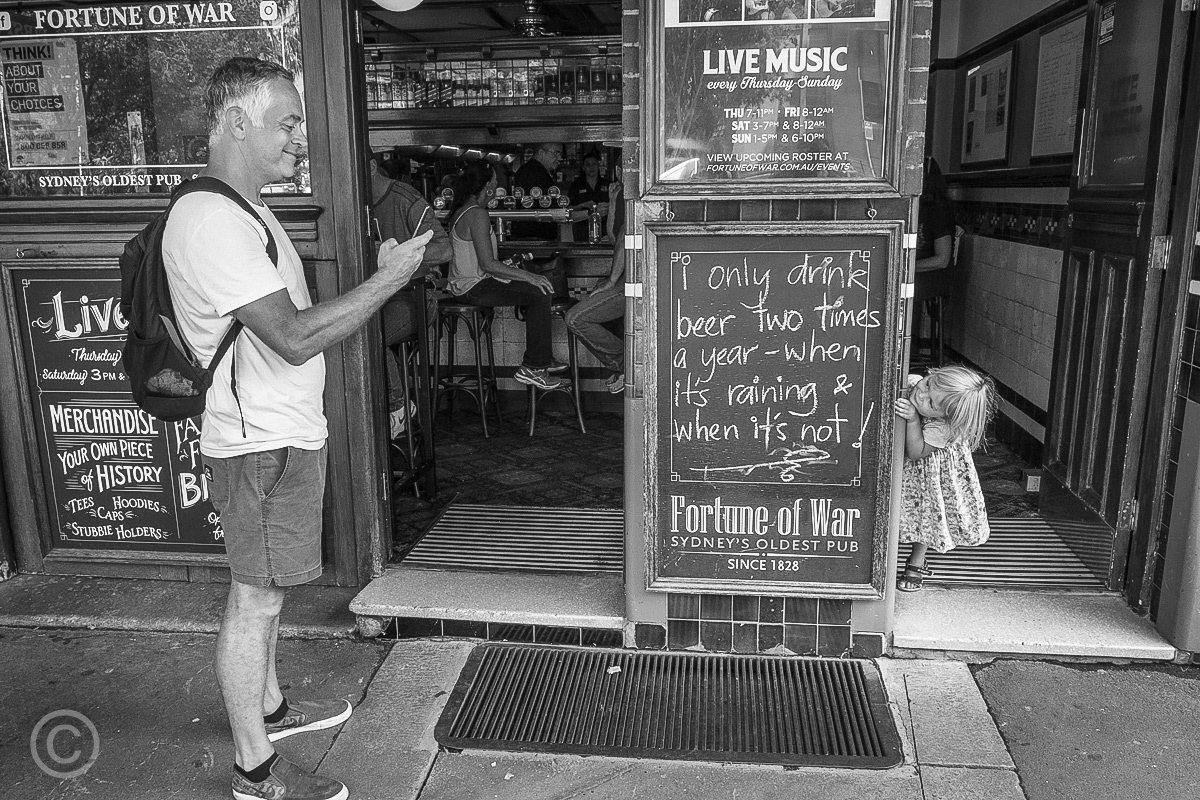 FORTUNE OF WAR
THINK!
ABOUT
YOUR
CHOICES
1800 069 858
SYDNEY'S OLDEST PUB
Live
Thursday
Saturday 3PM &
MERCHANDISE
YOUR OWN PIECE
of HISTORY
TEES HOODIES
CAPS
STUBBIE HOLDERS
LIVE MUSIC
every Thursday-Sunday
THU 7-11PM • FRI 8-12AM
SAT 3-7PM & 8-12AM
SUN 1-5PM & 6-10PM
VIEW UPCOMING ROSTER AT
FORTUNEOFWAR.COM.AU/EVENTS
i only drink
beer two times
a year - when
it's raining &
when it's not!
Fortune of War
SYDNEY'S OLDEST PUB
SINCE 1828
©